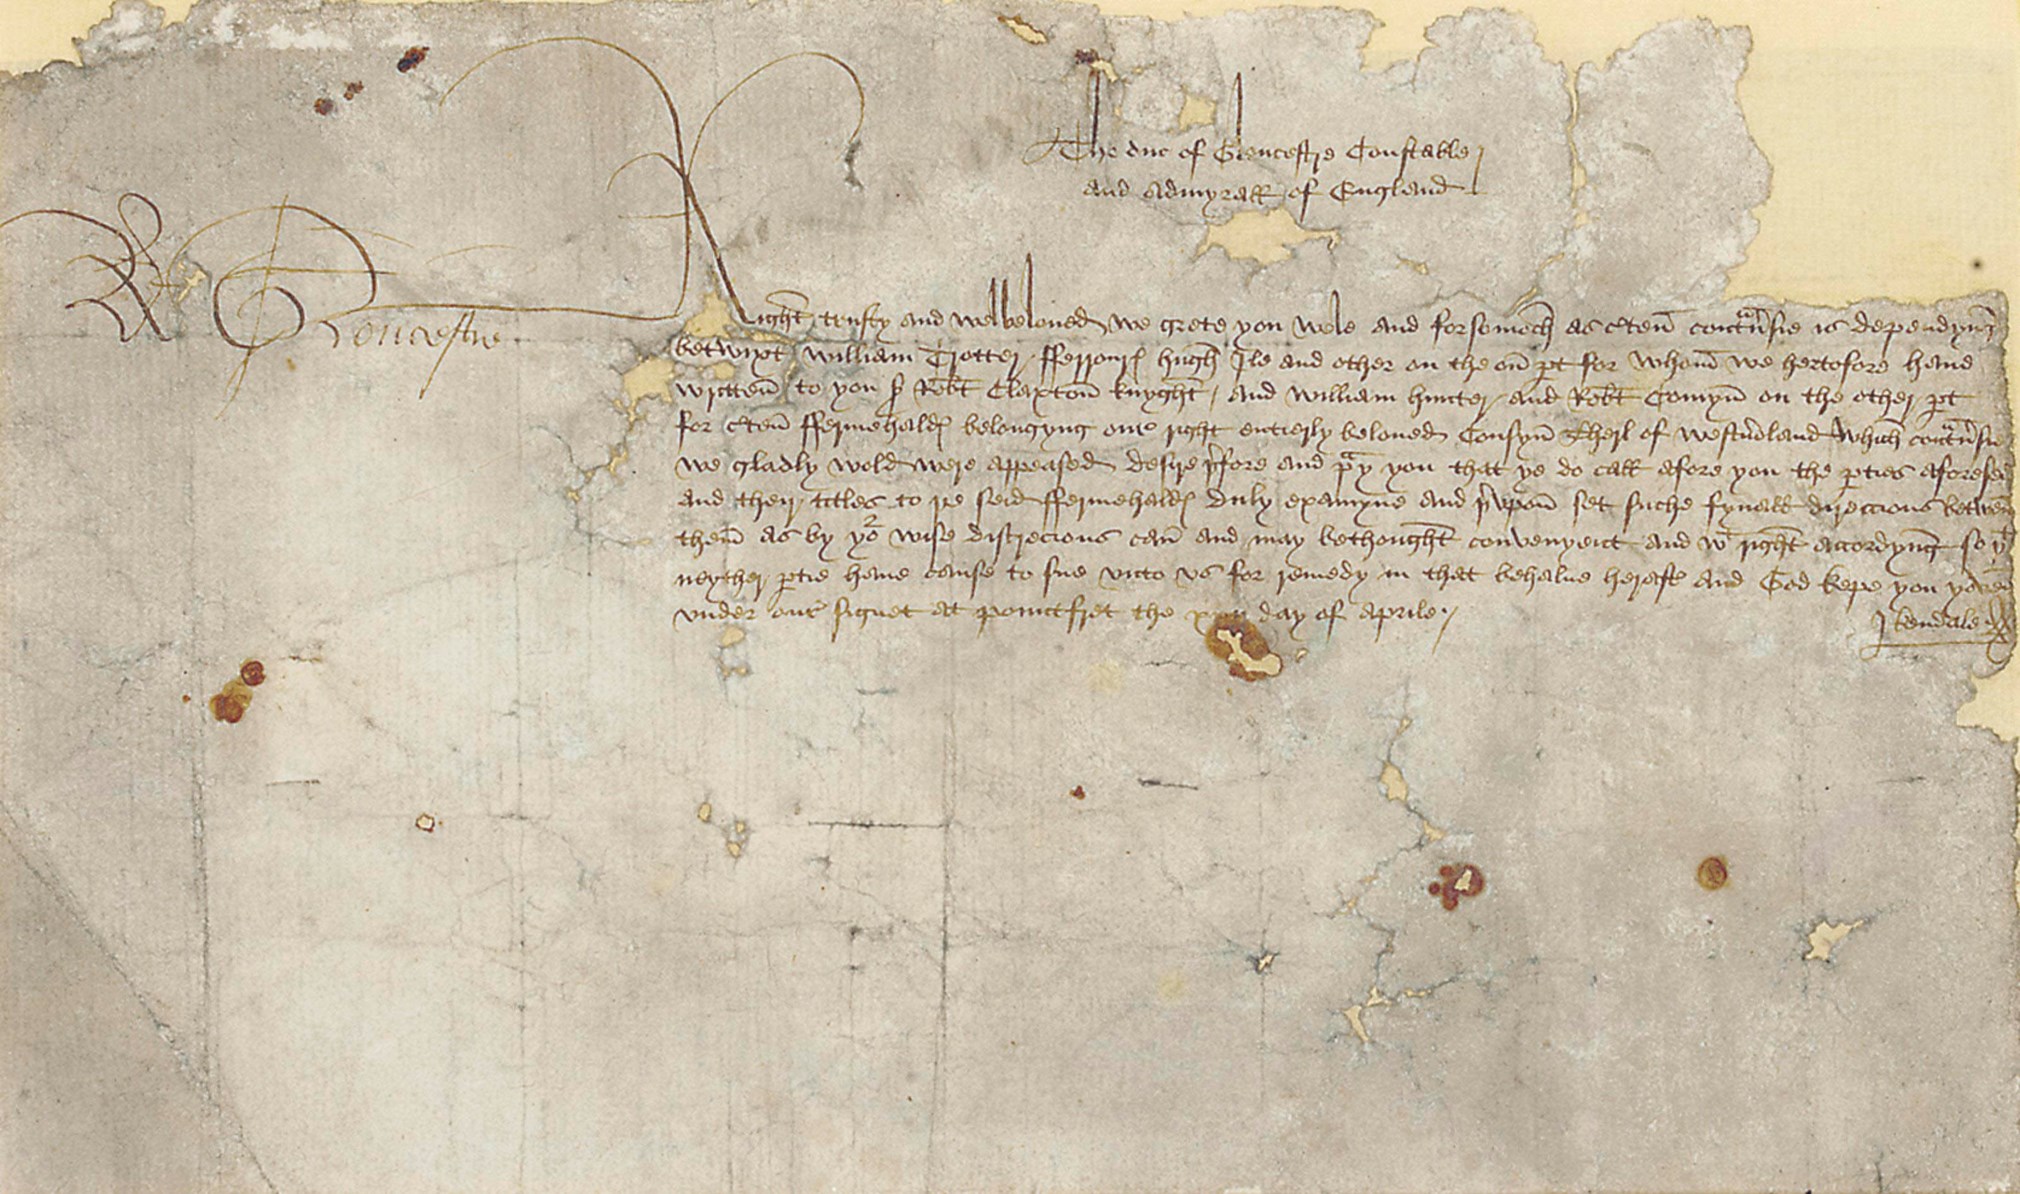 The duc of Gloucestre Constable
and Admyrall of England
R Gloucestre
Right trusty and welbeloued we grete you wele And forsomoch as cten contuersie is dependyng
betwixt William Trotter fferrour hugh Ile and other on the on pt for whom we hertofore haue
written to you sr Robt Claxton knyght / and William hunter and Robt Comyn on the other pt
for cten ffermehald belongyng our right entierly beloued Cousyn Therl of westmland which contuersie
we gladly wold were appeased desire yfore and pay you that ye do call afore you the pties aforeseid
and their titles to ye seid ffermehald duly examyne and yvpon set suche fynall direccions betwen
them as by yor wise discrecions can and may bethought convenyent and wt right accordyng so yt
neyther ptie haue cause to sue vnto vs for remedy in that behalue heraft And God kepe you yoven
vnder our signet at pountfret the day of Aprile
J kendale